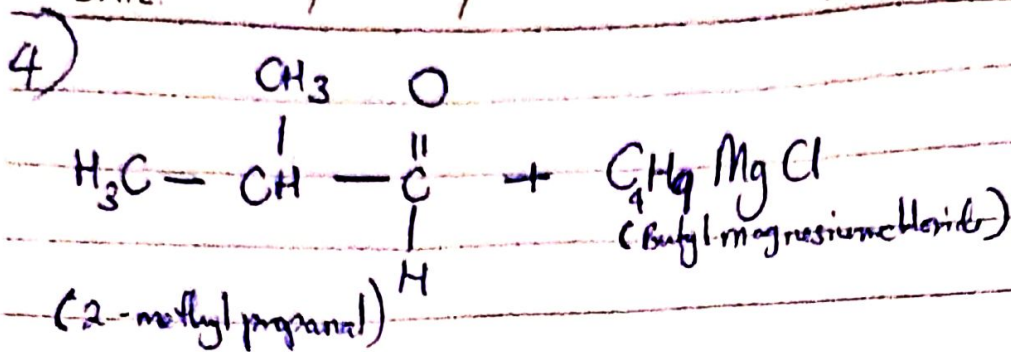 DATE:
4)
CH3 O
| ||
H3C — CH — C + C4H9 MgCl
| (Butylmagnesiumchloride)
H
(2-methylpropanal)